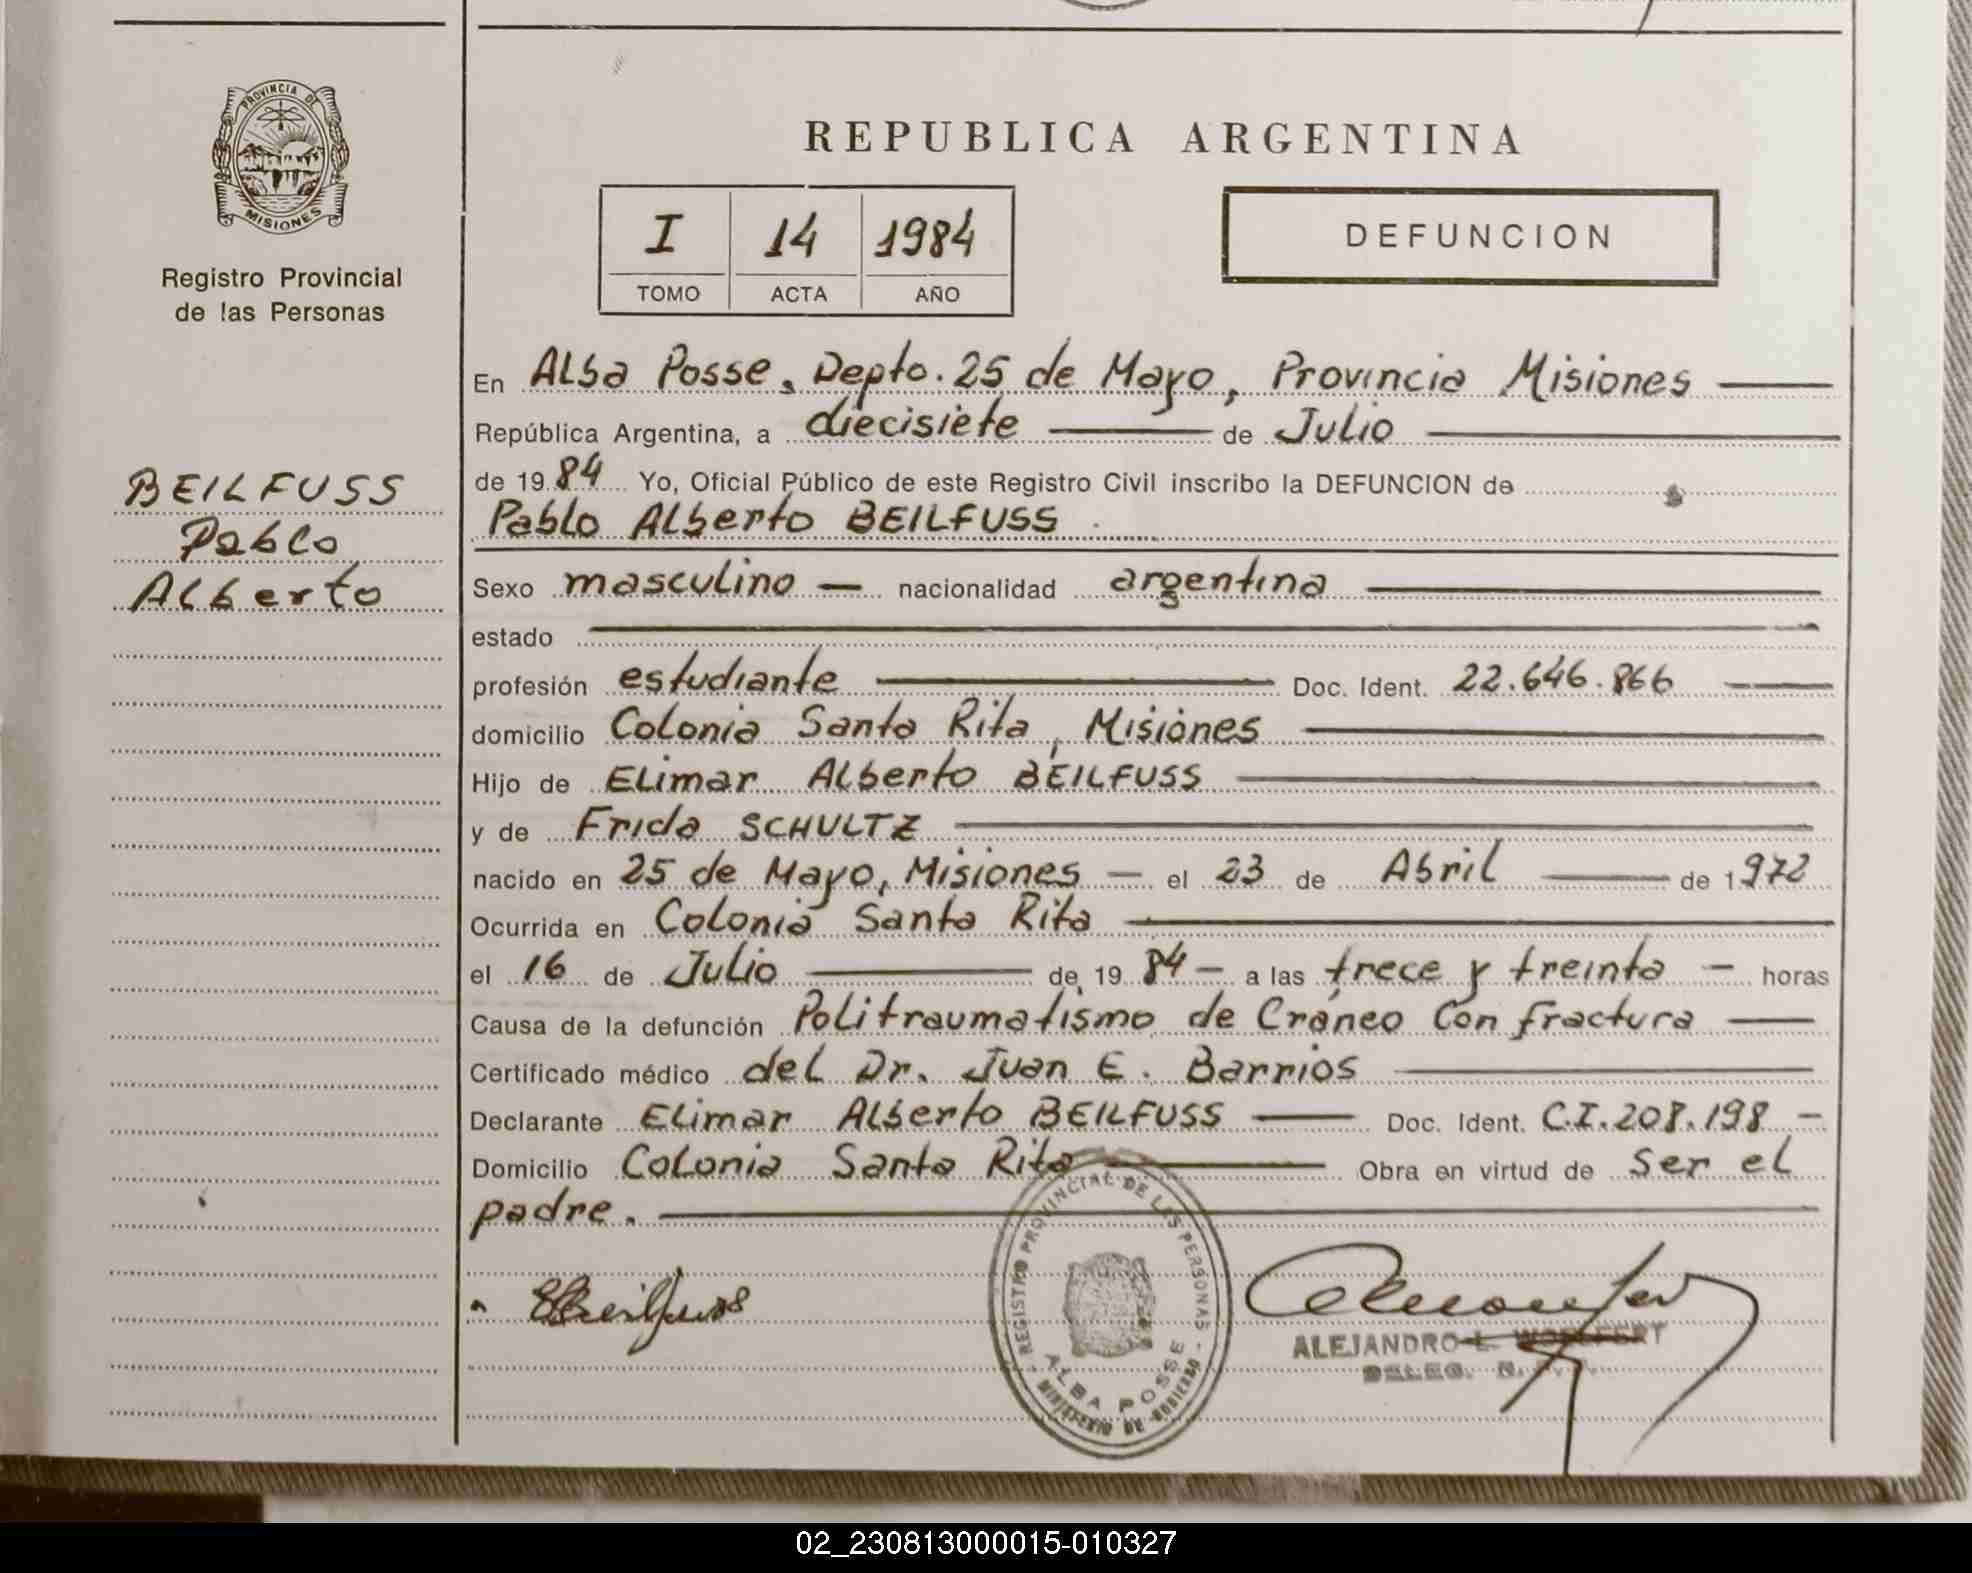 PROVINCIA DE
MISIONES
Registro Provincial
de las Personas
BEILFUSS
Pablo
Alberto
REPUBLICA ARGENTINA
I 14 1984
TOMO ACTA AÑO
DEFUNCION
En Alba Posse, Depto. 25 de Mayo, Provincia Misiones
República Argentina, a diecisiete de Julio
de 1984 Yo, Oficial Público de este Registro Civil inscribo la DEFUNCION de
Pablo Alberto BEILFUSS.
Sexo masculino — nacionalidad argentina
estado
profesión estudiante Doc. Ident. 22.646.866
domicilio Colonia Santa Rita, Misiones
Hijo de Elimar Alberto BEILFUSS
y de Frida SCHULTZ
nacido en 25 de Mayo, Misiones — el 23 de Abril de 1972
Ocurrida en Colonia Santa Rita
el 16 de Julio de 1984 — a las trece y treinta — horas
Causa de la defunción Politraumatismo de Cráneo Con fractura
Certificado médico del Dr. Juan E. Barrios
Declarante Elimar Alberto BEILFUSS Doc. Ident. C.I. 208.198 —
Domicilio Colonia Santa Rita Obra en virtud de ser el
padre.
EBeilfuss
REGISTRO PROVINCIAL DE LAS PERSONAS
ALBA POSSE
MINISTERIO DE GOBIERNO
ALEJANDRO L. WOELFERT
DELEG.
02_230813000015-010327